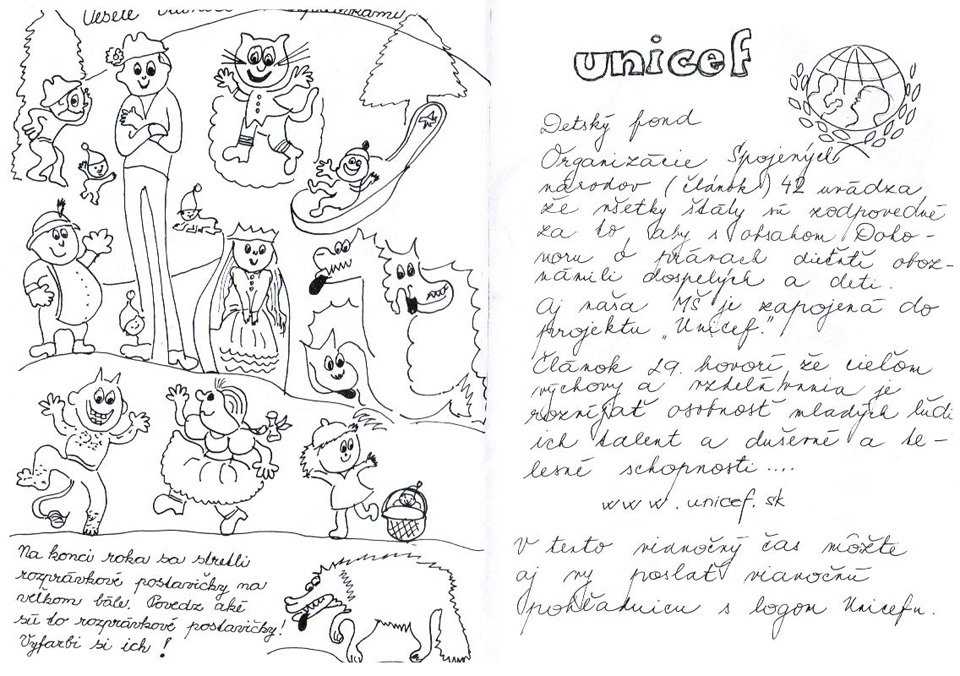 Veselé
Na konci roka sa stretli
rozprávkové postavičky na
velkom bále. Povedz aké
sú to rozprávkové postavičky!
Vyfarbi si ich!
unicef
Detský fond
Organizácie Spojených
národov (článok) 42 uvádza
že všetky štáty sú zodpovedné
za to, aby s obsahom Doho-
voru o právach dieťaťa oboz-
námili dospelých a deti.
Aj naša MŠ je zapojená do
projektu „Unicef."
Článok 29. hovorí, že cieľom
výchovy a vzdelávania je
rozvíjať osobnosť mladých ľudí
ich talent a duševné a te-
lesné schopnosti....
www.unicef.sk
V tento vianočný čas môžte
aj vy poslať vianočnú
pohľadnicu s logom Unicefu.